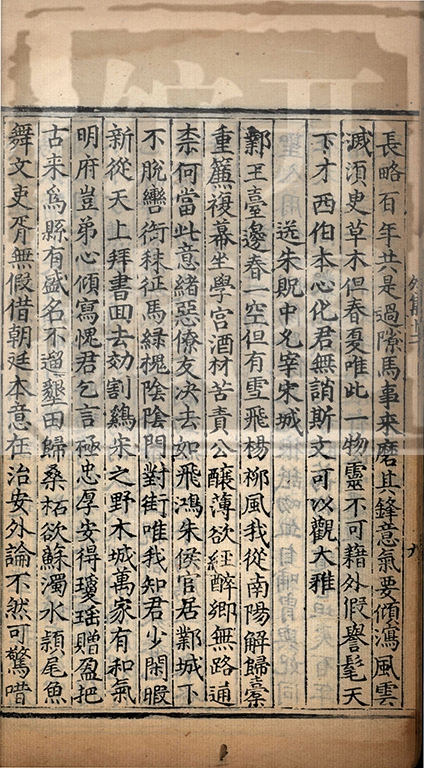 長略百年共是過隙馬事来磨其鋒意氣要傾瀉風雲
滅湏史草木但春夏唯此一物靈不可藉外假譽髦天
下才西伯本心化君無誚斯文可以觀大雅
送朱貺中允宰宋城
鄴王臺邊春一空但有雪飛楊柳風我從南陽解歸橐
重簾複幕坐學官酒材苦責公釀薄欲經醉鄉無路通
柰何當此意緒惡僚友决去如飛鴻朱侯官居鄴城下
不脫轡銜秣征馬緑槐陰陰門對街唯我知君少閑暇
新從天上拜書回去効割鷄宋之野木城萬家有和氣
明府豈弟心傾寫愧君乞言極忠厚安得瓊瑤贈盈把
古来爲縣有盛名不過墾田歸桑柘欲蘇濁水頳尾魚
舞文吏胥無假借朝廷本意在治安外論不然可驚唶